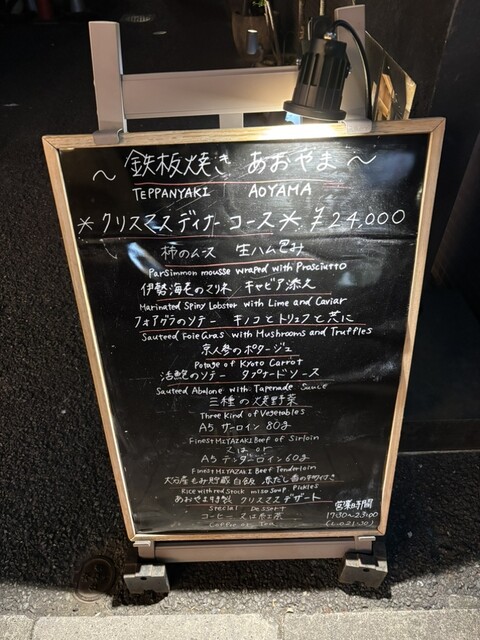 ～ 鉄板焼き あおやま ～
TEPPANYAKI AOYAMA
＊クリスマスディナーコース＊ ¥24,000
柿のムース 生ハム包み
Parsimmon mousse wraped with Prosciutto
伊勢海老のマリネ キャビア添え
Marinated Spiny Lobster with Lime and Caviar
フォアグラのソテー キノコとトリュフと共に
Sauteed Foie Gras with Mushrooms and Truffles
京人参のポタージュ
Potage of Kyoto Carrot
活鮑のソテー タプナードソース
Sauteed Abalone with Tapenade Sauce
三種の焼野菜
Three Kind of Vegetables
A5 サーロイン 80g
Finest MIYAZAKI Beef of Sirloin
又は or
A5 テンダーロイン 60g
Finest MIYAZAKI Beef Tenderloin
大分産もみ貯蔵 白飯 赤だし 香の物付き
Rice with red Stock miso Soup Pickles
あおやま特製 クリスマスデザート
Special Dessert
コーヒー 又は 紅茶
Coffee or Tea
営業時間
17:30~23:00
(L.O 21:30)